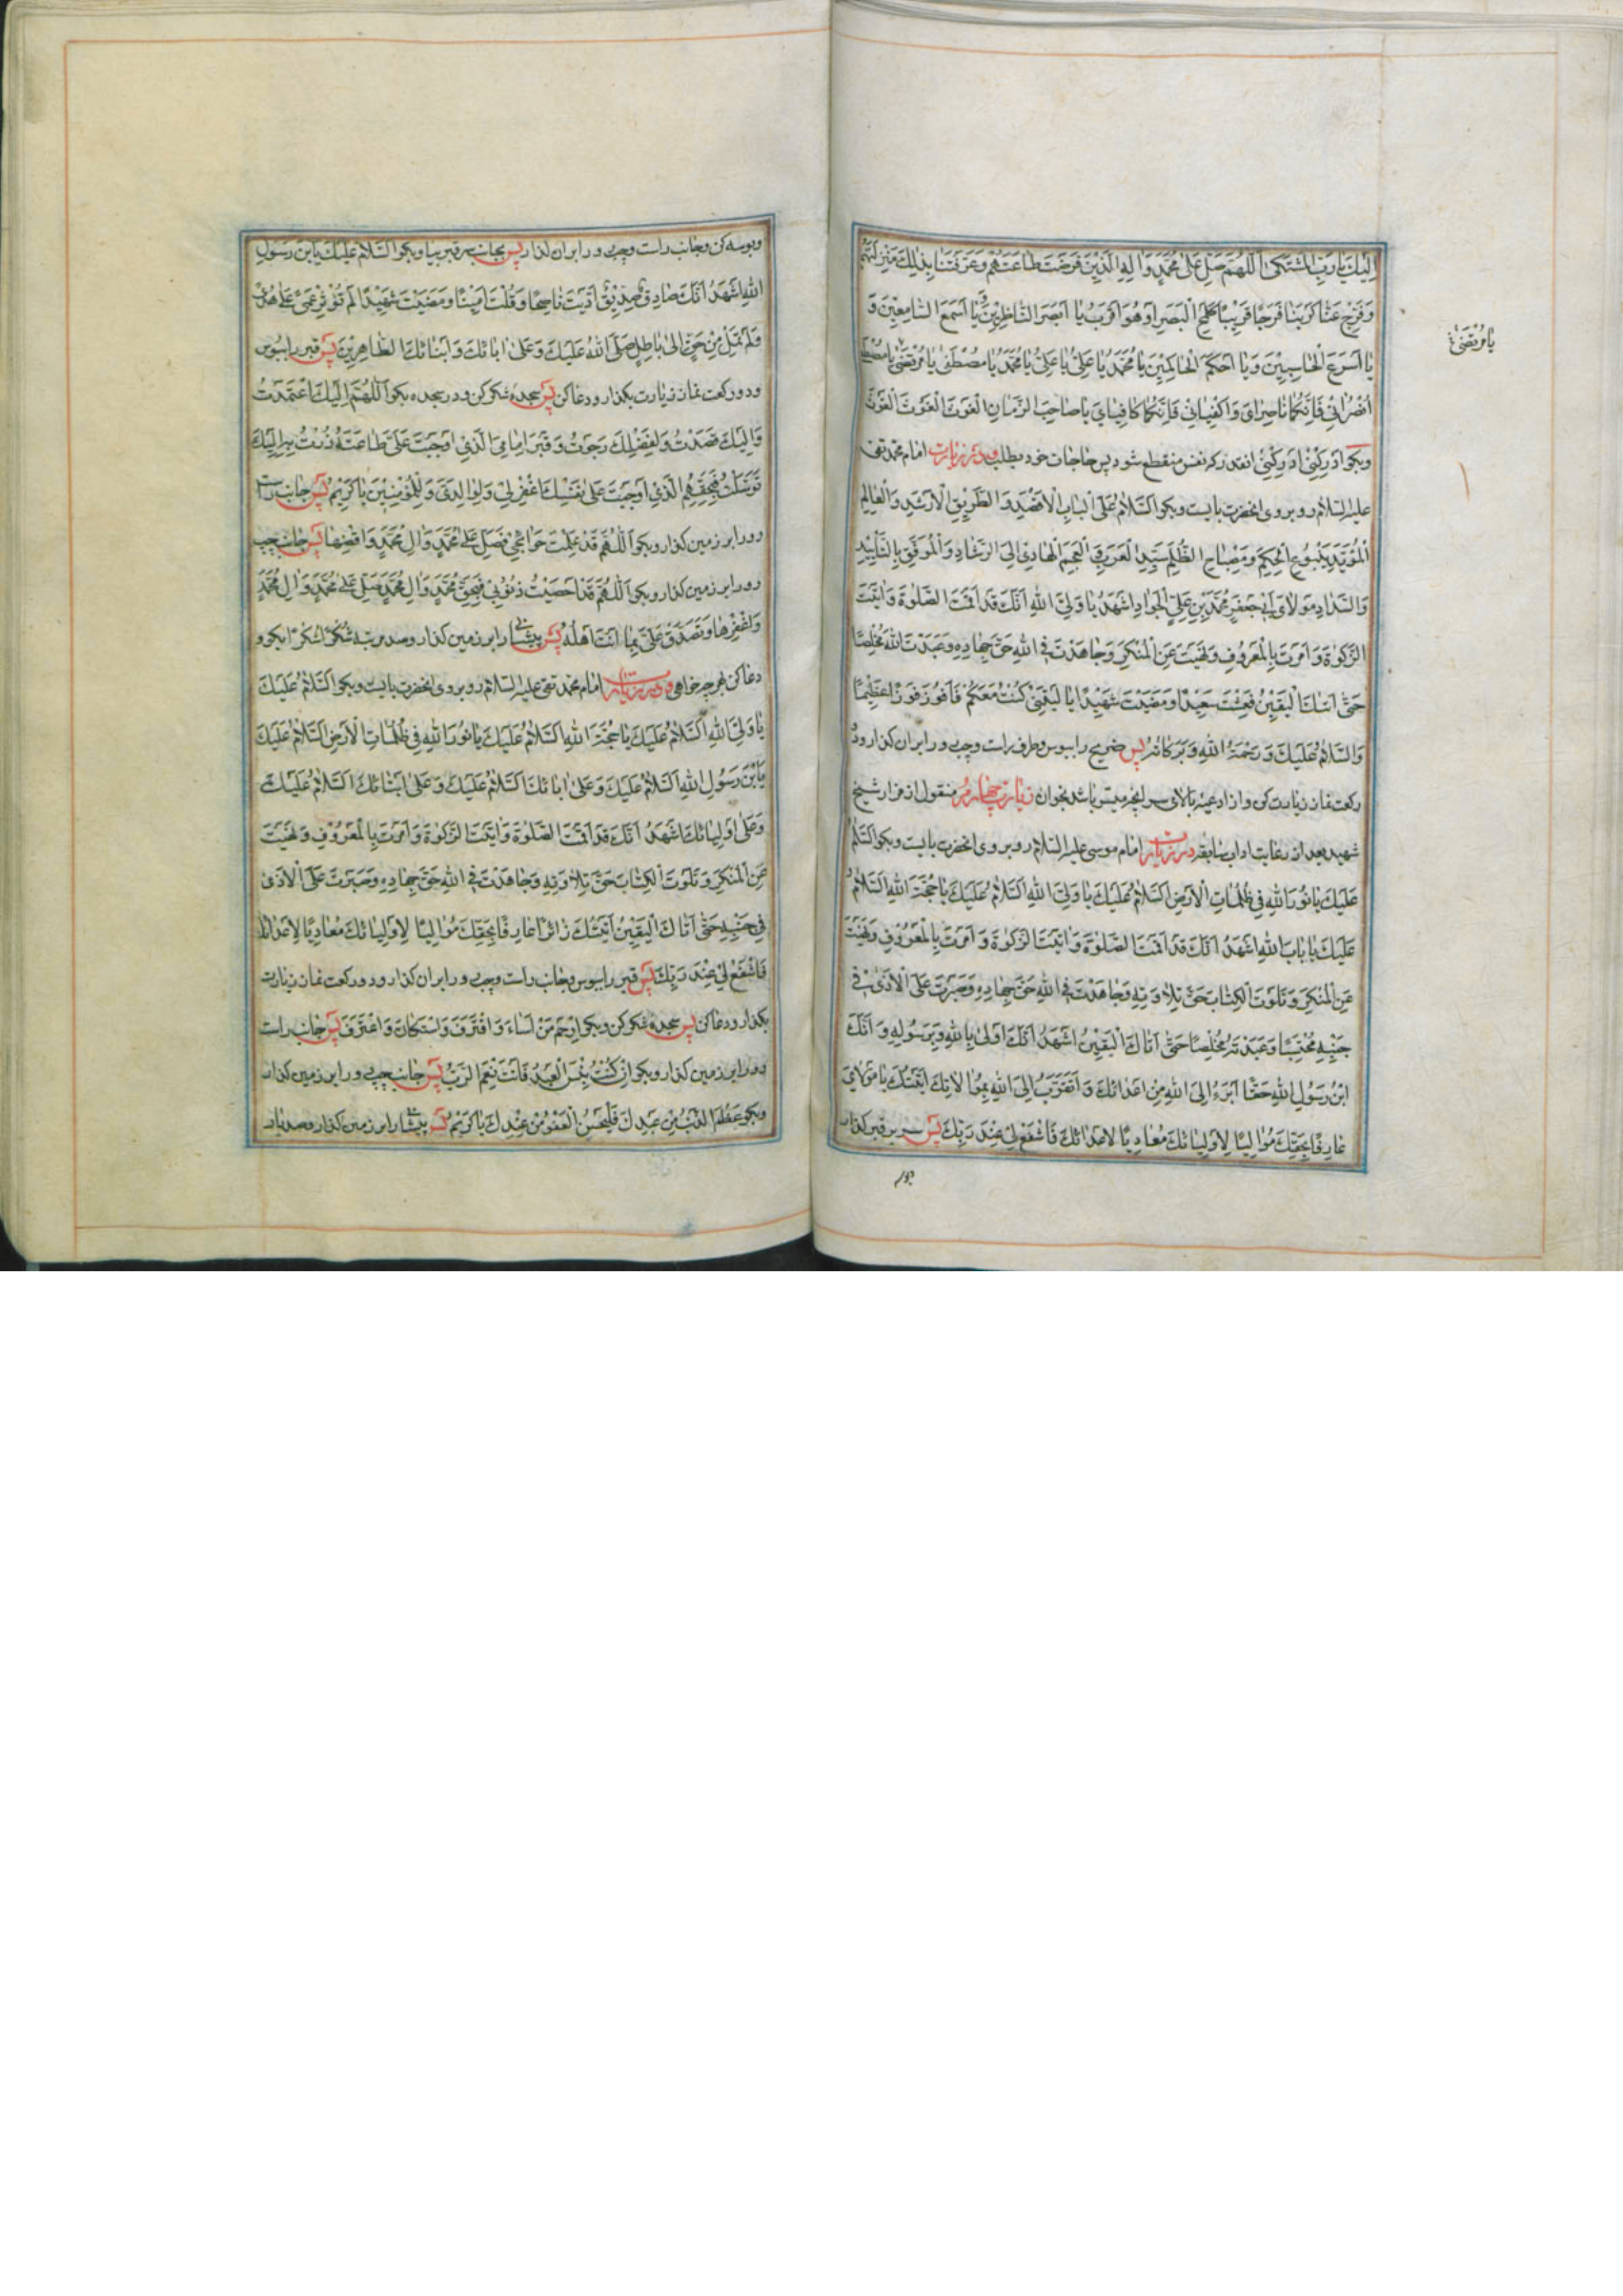 اِلَيْكَ يَا رَبِّ الْمُشْتَكٰى اَللّٰهُمَّ صَلِّ عَلٰى مُحَمَّدٍ وَاٰلِهِ الَّذِيْنَ فَرَضْتَ طَاعَتَهُمْ وَعَرَّفْتَنَا بِذٰلِكَ مَنْزِلَتَهُمْ
وَفَرِّجْ عَنَّا كَرْبَنَا فَرَجًا قَرِيْبًا كَلَمْحِ الْبَصَرِ اَوْ هُوَ اَقْرَبُ يَا اَبْصَرَ النَّاظِرِيْنَ وَيَا اَسْمَعَ السَّامِعِيْنَ وَ
يَا اَسْرَعَ الْحَاسِبِيْنَ وَيَا اَحْكَمَ الْحَاكِمِيْنَ يَا مُحَمَّدُ يَا عَلِيُّ يَا عَلِيُّ يَا مُحَمَّدُ يَا مُصْطَفٰى يَا مُرْتَضٰى يَا مُصْطَفٰى
يَا مُرْتَضٰى
اُنْصُرَانِي فَاِنَّكُمَا نَاصِرَايَ وَاكْفِيَانِي فَاِنَّكُمَا كَافِيَايَ يَا صَاحِبَ الزَّمَانِ الْغَوْثَ الْغَوْثَ الْغَوْثَ
وبكو اَدْرِكْنِي اَدْرِكْنِي انقدر كه نفس منقطع شود پس حاجات خود بطلب ودر زيارت امام محمد تقي
عليه السلام رو بروى انحضرت بايست وبكو اَلسَّلَامُ عَلَى الْبَابِ الْاَقْصَدِ وَالطَّرِيْقِ الْاَرْشَدِ وَالْعَالِمِ
الْمُؤَيَّدِ يَنْبُوْعِ الْحِكَمِ وَمِصْبَاحِ الظُّلَمِ سَيِّدِ الْعَرَبِ وَالْعَجَمِ الْهَادِي اِلَى الرَّشَادِ وَالْمُوَفَّقِ بِالتَّأْيِيْدِ
وَالسَّدَادِ مَوْلَايَ اَبِي جَعْفَرٍ مُحَمَّدِ بْنِ عَلِيٍّ الْجَوَادِ اَشْهَدُ يَا وَلِيَّ اللهِ اَنَّكَ قَدْ اَقَمْتَ الصَّلٰوةَ وَاٰتَيْتَ
الزَّكٰوةَ وَاَمَرْتَ بِالْمَعْرُوْفِ وَنَهَيْتَ عَنِ الْمُنْكَرِ وَجَاهَدْتَ فِي اللهِ حَقَّ جِهَادِهِ وَعَبَدْتَ اللهَ مُخْلِصًا
حَتّٰى اَتٰىكَ الْيَقِيْنُ فَعِشْتَ سَعِيْدًا وَمَضَيْتَ شَهِيْدًا يَا لَيْتَنِي كُنْتُ مَعَكُمْ فَاَفُوْزَ فَوْزًا عَظِيْمًا
وَالسَّلَامُ عَلَيْكَ وَرَحْمَةُ اللهِ وَبَرَكَاتُهُ پس ضريح را ببوس وطرف راست وچپ رو را بر ان كذار ودو
ركعت نماز زيارت كن و از ادعيه بالاى سر انچه ميسر باشد بخوان زيارت چهارم منقول از مزار شيخ
شهيد بعد از رعايت اداب سابقه در زيارت امام موسى عليه السلام رو بروى انحضرت بايست وبكو اَلسَّلَامُ
عَلَيْكَ يَا نُوْرَ اللهِ فِي ظُلُمَاتِ الْاَرْضِ اَلسَّلَامُ عَلَيْكَ يَا وَلِيَّ اللهِ اَلسَّلَامُ عَلَيْكَ يَا حُجَّةَ اللهِ اَلسَّلَامُ
عَلَيْكَ يَا بَابَ اللهِ اَشْهَدُ اَنَّكَ قَدْ اَقَمْتَ الصَّلٰوةَ وَاٰتَيْتَ الزَّكٰوةَ وَاَمَرْتَ بِالْمَعْرُوْفِ وَنَهَيْتَ
عَنِ الْمُنْكَرِ وَتَلَوْتَ الْكِتَابَ حَقَّ تِلَاوَتِهِ وَجَاهَدْتَ فِي اللهِ حَقَّ جِهَادِهِ وَصَبَرْتَ عَلَى الْاَذٰى فِي
جَنْبِهِ مُحْتَسِبًا وَعَبَدْتَهُ مُخْلِصًا حَتّٰى اَتَاكَ الْيَقِيْنُ اَشْهَدُ اَنَّكَ اَوْلٰى بِاللهِ وَبِرَسُوْلِهِ وَاَنَّكَ
ابْنُ رَسُوْلِ اللهِ حَقًّا اَبْرَءُ اِلَى اللهِ مِنْ اَعْدَائِكَ وَاَتَقَرَّبُ اِلَى اللهِ بِمُوَالَاتِكَ اَتَيْتُكَ يَا مَوْلَايَ
عَارِفًا بِحَقِّكَ مُوَالِيًا لِاَوْلِيَائِكَ مُعَادِيًا لِاَعْدَائِكَ فَاشْفَعْ لِي عِنْدَ رَبِّكَ پس سر بر قبر كذار
وبوسه كن وجانب راست وچپ رو را بر ان كذار پس بجانب سر قبر بيا وبكو اَلسَّلَامُ عَلَيْكَ يَا بْنَ رَسُوْلِ
اللهِ اَشْهَدُ اَنَّكَ صَادِقٌ صِدِّيْقٌ اَدَّيْتَ نَاصِحًا وَقُلْتَ اَمِيْنًا وَمَضَيْتَ شَهِيْدًا لَمْ تُؤْثِرْ عَمًى عَلٰى هُدًى
وَلَمْ تَمِلْ مِنْ حَقٍّ اِلٰى بَاطِلٍ صَلَّى اللهُ عَلَيْكَ وَعَلٰى اٰبَائِكَ وَاَبْنَائِكَ الطَّاهِرِيْنَ پس قبر را ببوس
ودو ركعت نماز زيارت بكذار ودعا كن پس سجده شكر كن ودر سجده بكو اَللّٰهُمَّ اِلَيْكَ اعْتَمَدْتُ
وَاِلَيْكَ قَصَدْتُ وَلِفَضْلِكَ رَجَوْتُ وَقَبْرَ اِمَامِيَ الَّذِي اَوْجَبْتَ عَلَيَّ طَاعَتَهُ زُرْتُ وَبِهِ اِلَيْكَ
تَوَسَّلْتُ فَبِحَقِّهِمُ الَّذِي اَوْجَبْتَ عَلٰى نَفْسِكَ اغْفِرْ لِي وَلِوَالِدَيَّ وَلِلْمُؤْمِنِيْنَ يَا كَرِيْمُ پس جانب راست
رو را بر زمين كذار وبكو اَللّٰهُمَّ قَدْ عَلِمْتَ حَوَائِجِي فَصَلِّ عَلٰى مُحَمَّدٍ وَاٰلِ مُحَمَّدٍ وَاقْضِهَا پس جانب چپ
رو را بر زمين كذار وبكو اَللّٰهُمَّ قَدْ اَحْصَيْتَ ذُنُوْبِي فَبِحَقِّ مُحَمَّدٍ وَاٰلِ مُحَمَّدٍ صَلِّ عَلٰى مُحَمَّدٍ وَاٰلِ مُحَمَّدٍ
وَاغْفِرْهَا وَتَصَدَّقْ عَلَيَّ بِمَا اَنْتَ اَهْلُهُ پس پيشانى را بر زمين كذار وصد مرتبه شُكْرًا شُكْرًا بكو و
دعا كن بهر چه خواهى ودر زيارت امام محمد تقى عليه السلام رو بروى انحضرت بايست وبكو اَلسَّلَامُ عَلَيْكَ
يَا وَلِيَّ اللهِ اَلسَّلَامُ عَلَيْكَ يَا حُجَّةَ اللهِ اَلسَّلَامُ عَلَيْكَ يَا نُوْرَ اللهِ فِي ظُلُمَاتِ الْاَرْضِ اَلسَّلَامُ عَلَيْكَ
يَا بْنَ رَسُوْلِ اللهِ اَلسَّلَامُ عَلَيْكَ وَعَلٰى اٰبَائِكَ اَلسَّلَامُ عَلَيْكَ وَعَلٰى اَبْنَائِكَ اَلسَّلَامُ عَلَيْكَ
وَعَلٰى اَوْلِيَائِكَ اَشْهَدُ اَنَّكَ قَدْ اَقَمْتَ الصَّلٰوةَ وَاٰتَيْتَ الزَّكٰوةَ وَاَمَرْتَ بِالْمَعْرُوْفِ وَنَهَيْتَ
عَنِ الْمُنْكَرِ وَتَلَوْتَ الْكِتَابَ حَقَّ تِلَاوَتِهِ وَجَاهَدْتَ فِي اللهِ حَقَّ جِهَادِهِ وَصَبَرْتَ عَلَى الْاَذٰى
فِي جَنْبِهِ حَتّٰى اَتَاكَ الْيَقِيْنُ اَتَيْتُكَ زَائِرًا عَارِفًا بِحَقِّكَ مُوَالِيًا لِاَوْلِيَائِكَ مُعَادِيًا لِاَعْدَائِكَ
فَاشْفَعْ لِي عِنْدَ رَبِّكَ پس قبر را ببوس وجانب راست وچپ رو را بر ان كذار ودو ركعت نماز زيارت
بكذار ودعا كن پس سجده شكر كن وبكو اِرْحَمْ مَنْ اَسَاءَ وَاقْتَرَفَ وَاسْتَكَانَ وَاعْتَرَفَ پس جانب راست
رو را بر زمين كذار وبكو اِنْ كُنْتُ بِئْسَ الْعَبْدُ فَاَنْتَ نِعْمَ الرَّبُّ پس جانب چپ رو را بر زمين كذار
وبكو عَظُمَ الذَّنْبُ مِنْ عَبْدِكَ فَلْيَحْسُنِ الْعَفْوُ مِنْ عِنْدِكَ يَا كَرِيْمُ پس پيشانى را بر زمين كذار وصد بار